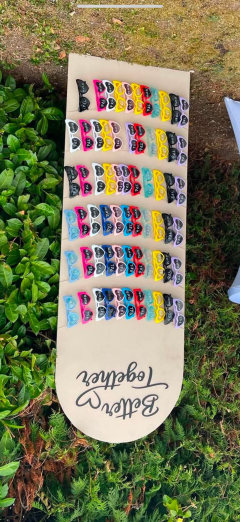 Better
Together